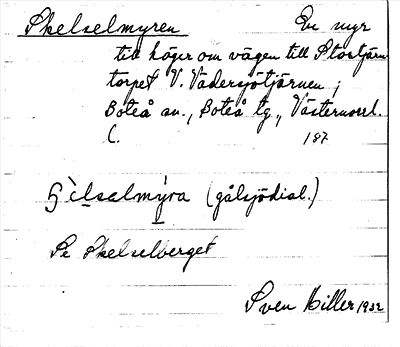 Skelselmyren En myr
till höger om vägen till Stortjärn
torpet V. Vadersjötjärnen;
Boteå sn., Boteå tg., Västernorrl.
l. 187
ʃèlsalmýra (gålsjödial.)
Se Skelselberget
Sven Hiller 1932